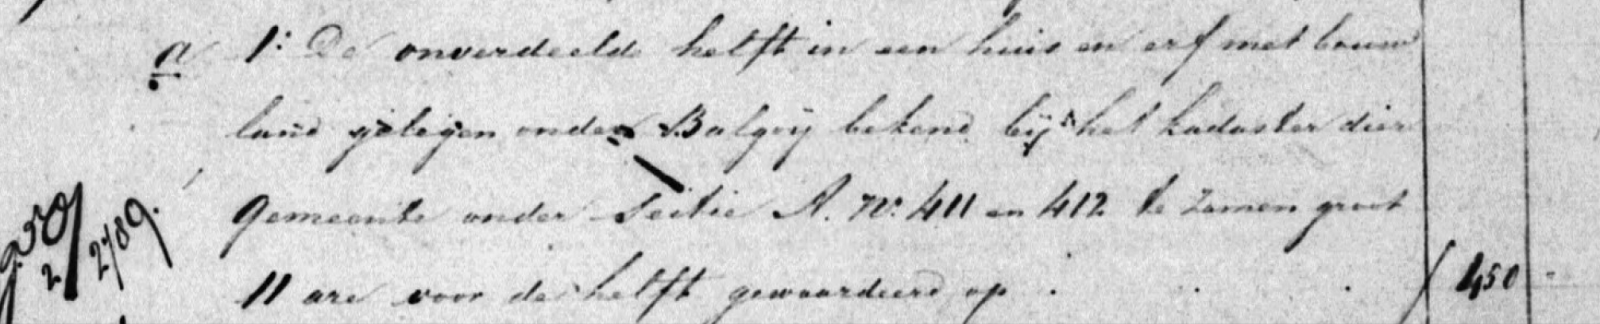 a 1: De onverdeelde helft in een huis en erf met bouw
land gelegen onder Balgoij bekend bij het kadaster dier
gemeente onder Sectie A. No. 411 en 412 te zamen groot
11 are voor de helft gewaardeerd op . . . f 450 -
2/89.